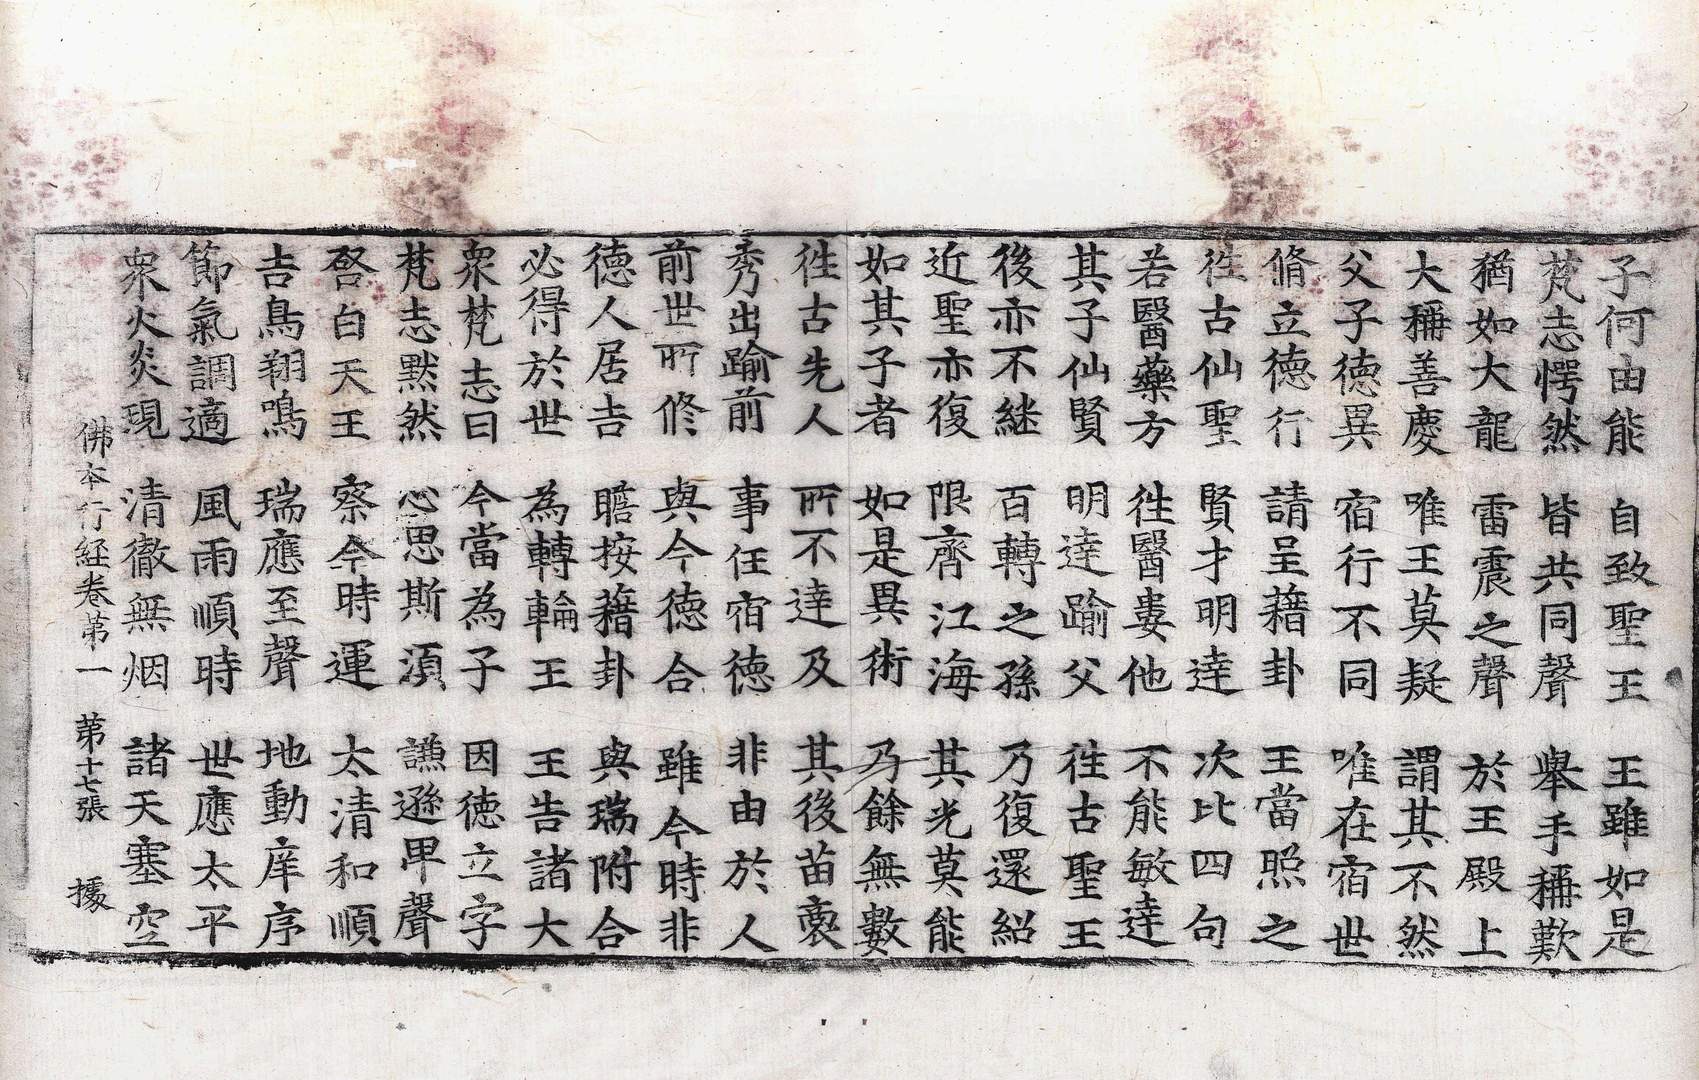 子何由能　自致聖王　王雖如是
梵志愕然　皆共同聲　舉手稱歎
猶如大龍　雷震之聲　於王殿上
大稱善慶　唯王莫疑　謂其不然
父子德異　宿行不同　唯在宿世
脩立德行　請呈藉卦　王當照之
徃古仙聖　賢才明逹　次比四句
若醫藥方　徃醫婁他　不能敏逹
其子仙賢　明逹踰父　徃古聖王
後亦不継　百轉之孫　乃復還紹
近聖亦復　限齊江海　其光莫能
如其子者　如是異術　乃餘無數
徃古先人　所不逹及　其後苗裔
秀出踰前　事任宿德　非由於人
前世所修　與今德合　雖今時非
德人居吉　瞻按藉卦　與瑞附合
必得於世　為轉輪王　王告諸大
衆梵志曰　今當為子　因德立字
梵志黙然　心思斯須　謙遜甲聲
啓白天王　察令時運　太清和順
吉鳥翔鳴　瑞應至聲　地動庠序
節氣調適　風雨順時　世應太平
衆火炎現　清徹無烟　諸天塞空
佛本行経卷苐一　苐十七張　據